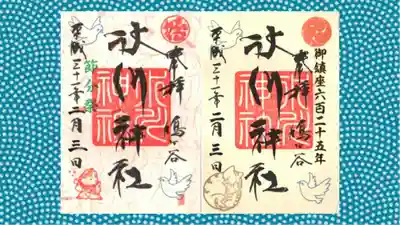 奉拝 鳩ヶ谷
氷川神社
節分祭
平成三十一年二月三日
御鎮座六百二十五年
奉拝 鳩ヶ谷
氷川神社
平成三十一年二月三日